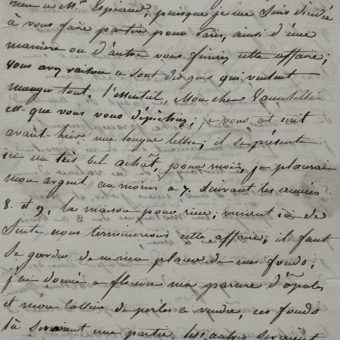 à Mr. puisque je me suis décidé
à vous faire partir pour Paris, ainsi d'une
manière ou d'autre vous finirez cette affaire;
vous avez raison ce sont des gens qui veulent
manger tout, l'essentiel, Mon cher
est que vous vous dépêchiez; je vous ai écrit
avant-hier une longue lettre; il se présente
ici un très bel achat pour moi, je placerai
mon argent au moins à 7. suivant les années
8. et 9. la maison pour rien; venez ici de
suite nous terminerons cette affaire; il faut
se garder de mieux placer de nos fonds;
j'ai donné à ma parure d'opales
et mon collier de perles à vendre, ces fonds
là seraient une partie, les autres seraient